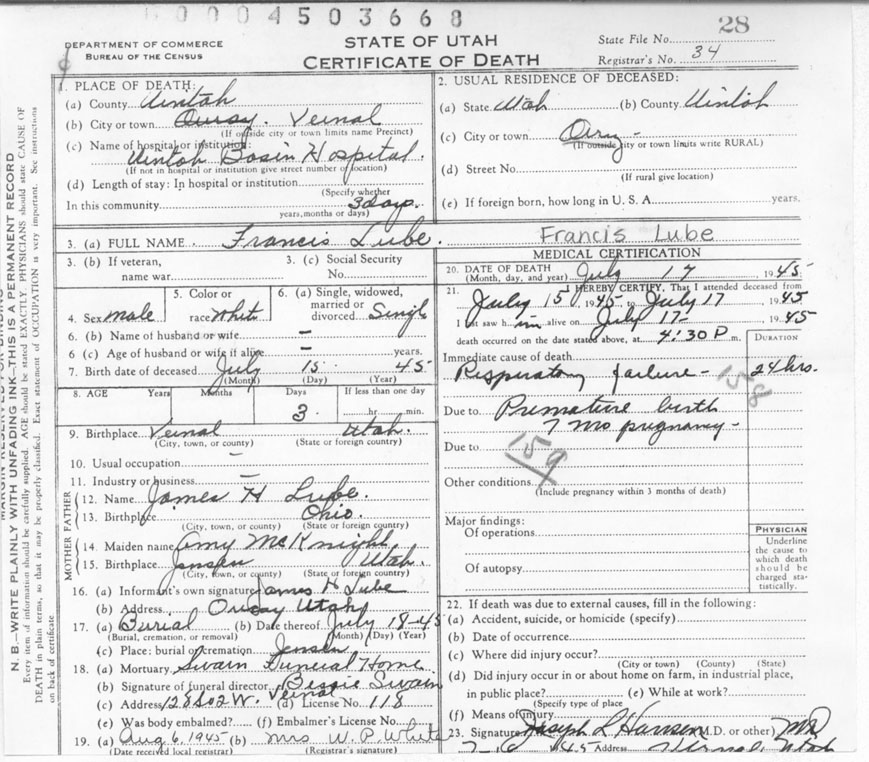 0004503668
28
DEPARTMENT OF COMMERCE
BUREAU OF THE CENSUS
STATE OF UTAH
CERTIFICATE OF DEATH
State File No.
Registrar's No. 34
MARGIN RESERVED FOR BINDING
N. B.—WRITE PLAINLY WITH UNFADING INK—THIS IS A PERMANENT RECORD
Every item of information should be carefully supplied. AGE should be stated EXACTLY. PHYSICIANS should state CAUSE OF
DEATH in plain terms, so that it may be properly classified. Exact statement of OCCUPATION is very important. See instructions
on back of certificate
1. PLACE OF DEATH:
(a) County Uintah
(b) City or town Ouray. Vernal
(If outside city or town limits name Precinct)
(c) Name of hospital or institution:
Uintah Basin Hospital.
(If not in hospital or institution give street number or location)
(d) Length of stay: In hospital or institution
(Specify whether
In this community 3 days.
years, months or days)
2. USUAL RESIDENCE OF DECEASED:
(a) State Utah (b) County Uintah
(c) City or town Ouray -
(If outside city or town limits write RURAL)
(d) Street No.
(If rural give location)
(e) If foreign born, how long in U. S. A. years.
3. (a) FULL NAME Francis Lube. Francis Lube
3. (b) If veteran,
name war
3. (c) Social Security
No.
4. Sex male
5. Color or
race White
6. (a) Single, widowed,
married or
divorced Single
6. (b) Name of husband or wife —
6. (c) Age of husband or wife if alive — years.
7. Birth date of deceased July 15 45
(Month) (Day) (Year)
8. AGE Years Months Days If less than one day
3 hr. min.
9. Birthplace Vernal Utah.
(City, town, or county) (State or foreign country)
10. Usual occupation —
11. Industry or business —
FATHER
12. Name James H Lube.
13. Birthplace Ohio.
(City, town, or county) (State or foreign country)
MOTHER
14. Maiden name Amy McKnight
15. Birthplace Jensen Utah.
(City, town, or county) (State or foreign country)
16. (a) Informant's own signature James H Lube
(b) Address Ouray Utah
17. (a) Burial (b) Date thereof July 18-45
(Burial, cremation, or removal) (Month) (Day) (Year)
(c) Place: burial or cremation Jensen
18. (a) Mortuary Swain Funeral Home
(b) Signature of funeral director Bessie Swain
Vernal
(c) Address 128 So 2 W. (d) License No. 118
(e) Was body embalmed? (f) Embalmer's License No.
19. (a) Aug 6, 1945 (b) Mrs W. P. White
(Date received local registrar) (Registrar's signature)
MEDICAL CERTIFICATION
20. DATE OF DEATH
(Month, day, and year) July 17, 1945
21. I HEREBY CERTIFY, That I attended deceased from
July 15, 1945 to July 17, 1945
I last saw him alive on July 17-, 1945
death occurred on the date stated above, at 4:30 P m.
DURATION
Immediate cause of death
Respiratory failure - 24 hrs.
158
Due to Premature birth
7 mo pregnancy -
Due to
159
Other conditions
(Include pregnancy within 3 months of death)
Major findings:
Of operations
Of autopsy
PHYSICIAN
Underline
the cause to
which death
should be
charged sta-
tistically.
22. If death was due to external causes, fill in the following:
(a) Accident, suicide, or homicide (specify)
(b) Date of occurrence
(c) Where did injury occur?
(City or town) (County) (State)
(d) Did injury occur in or about home on farm, in industrial place,
in public place? (e) While at work?
(Specify type of place
(f) Means of injury
23. Signature Joseph L Hansen (M.D. or other) MD
45 Address Vernal, Utah